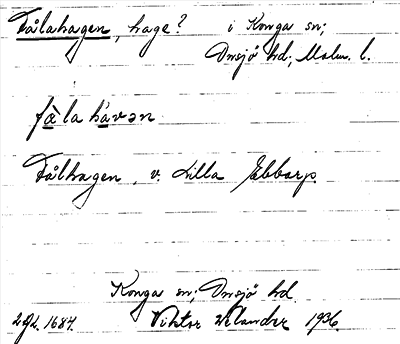 Fålahagen, hage? i Konga sn;
Onsjö hd; Malm. l.
fàla hávən
Fålhagen, v. Lilla Ebbarp.
Konga sn; Onsjö hd.
1684. Viktor Welander 1936.